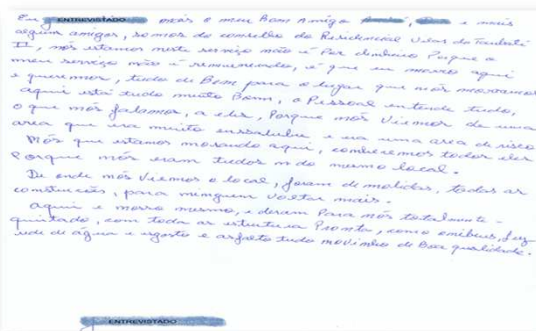 Eu ENTREVISTADO mais o meu Bom Amigo , e mais
alguns amigos, somos do conselho do Residencial Vilas de Taubaté
II, nós estamos neste serviço não é Por dinheiro Porque o
meu serviço não é remunerado, é que eu moro aqui
e queremos, tudo de Bom para o lugar que nós moramos
aqui está tudo muito Bom, o Pessoal entende tudo,
o que nós falamos, a eles, Porque nós Viemos de uma
area que era muito insalubre e era uma area de risco
Nós que estamos morando aqui, conhecemos todos eles
Porque nós eram tudos do mesmo local.
De onde nós Viemos o local, foram demolidas, todas as
construções, para ninguem voltar mais.
Aqui e nosso mesmo, e deram Para nós totalmente
quitado, com toda as estrutura Pronta, como onibus, luz
rede de água e esgoto e asfalto tudo novinho de Boa qualidade.
ENTREVISTADO